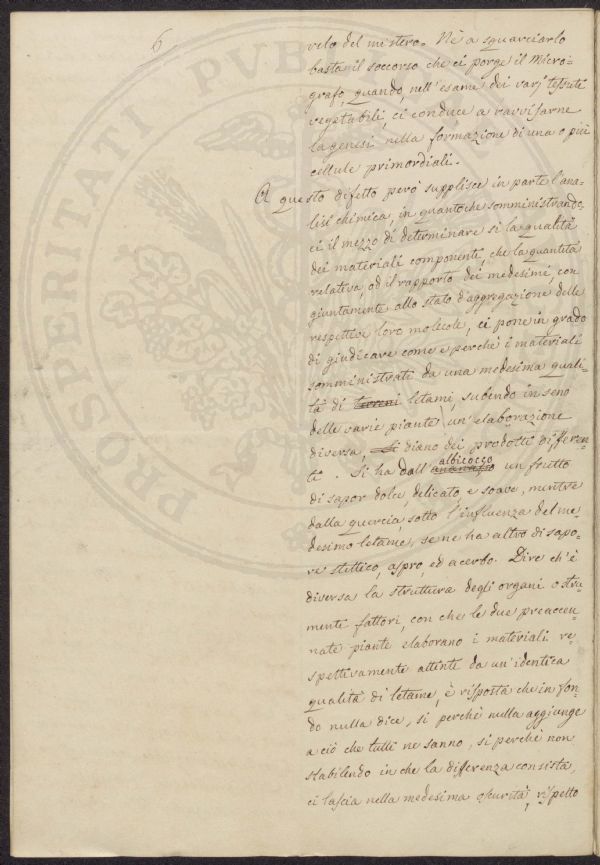 6
velo del mistero. Nè a squarciarlo
basta il soccorso che ci porge il Micro-
grafo, quando, nell'esame dei varj tessuti
vegetabili, ci conduce a ravvisarne
la genesi nella formazione di una o più
cellule primordiali.
A questo difetto però supplisce in parte l'ana-
lisi chimica, in quantoche somministrando
ci il mezzo di determinare sì la qualità
dei materiali componenti, che la quantità
relativa, od il rapporto dei medesimi, con
giuntamente allo stato d'aggregazione delle
respettive loro molecole, ci pone in grado
di giudicare come e perchè i materiali
somministrati da una medesima quali-
tà di terreni letami, subendo in seno
delle varie piante un'elaborazione
diversa, si diano dei prodotti differen-
ti. Si ha dall'ananasso albicocco un frutto
di sapor dolce, delicato, e soave, mentre
dalla quercia, sotto l'influenza del me-
desimo letame, se ne ha altro di sapo-
re stittico, aspro, ed acerbo. Dire ch'è
diversa la struttura degli organi o stru-
menti fattori, con che le due preaccen-
nate piante elaborano i materiali re-
spettivamente attinti da un'identica
qualità di letame, è risposta che in fon-
do nulla dice, si perchè nulla aggiunge
a ciò che tutti ne sanno, si perchè non
stabilendo in che la differenza consista,
ci lascia nella medesima oscurità, rispetto
PROSPERITATI PVB